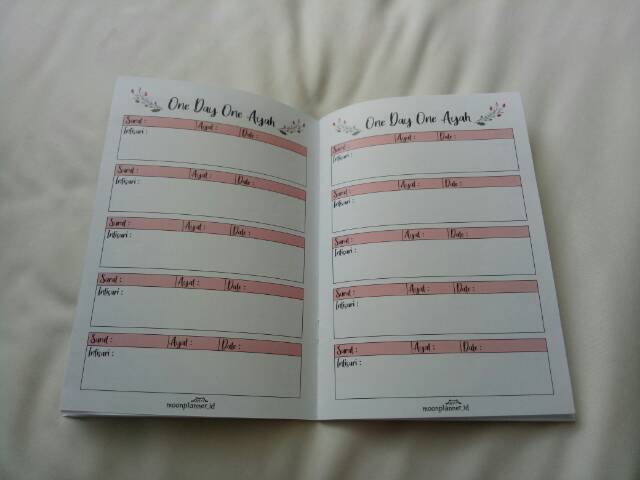 One Day One Aiyah
Surat : Ayat : Date :
Intisari :
Surat : Ayat : Date :
Intisari :
Surat : Ayat : Date :
Intisari :
Surat : Ayat : Date :
Intisari :
Surat : Ayat : Date :
Intisari :
moonplanner_id
One Day One Aiyah
Surat : Ayat : Date :
Intisari :
Surat : Ayat : Date :
Intisari :
Surat : Ayat : Date :
Intisari :
Surat : Ayat : Date :
Intisari :
Surat : Ayat : Date :
Intisari :
moonplanner_id